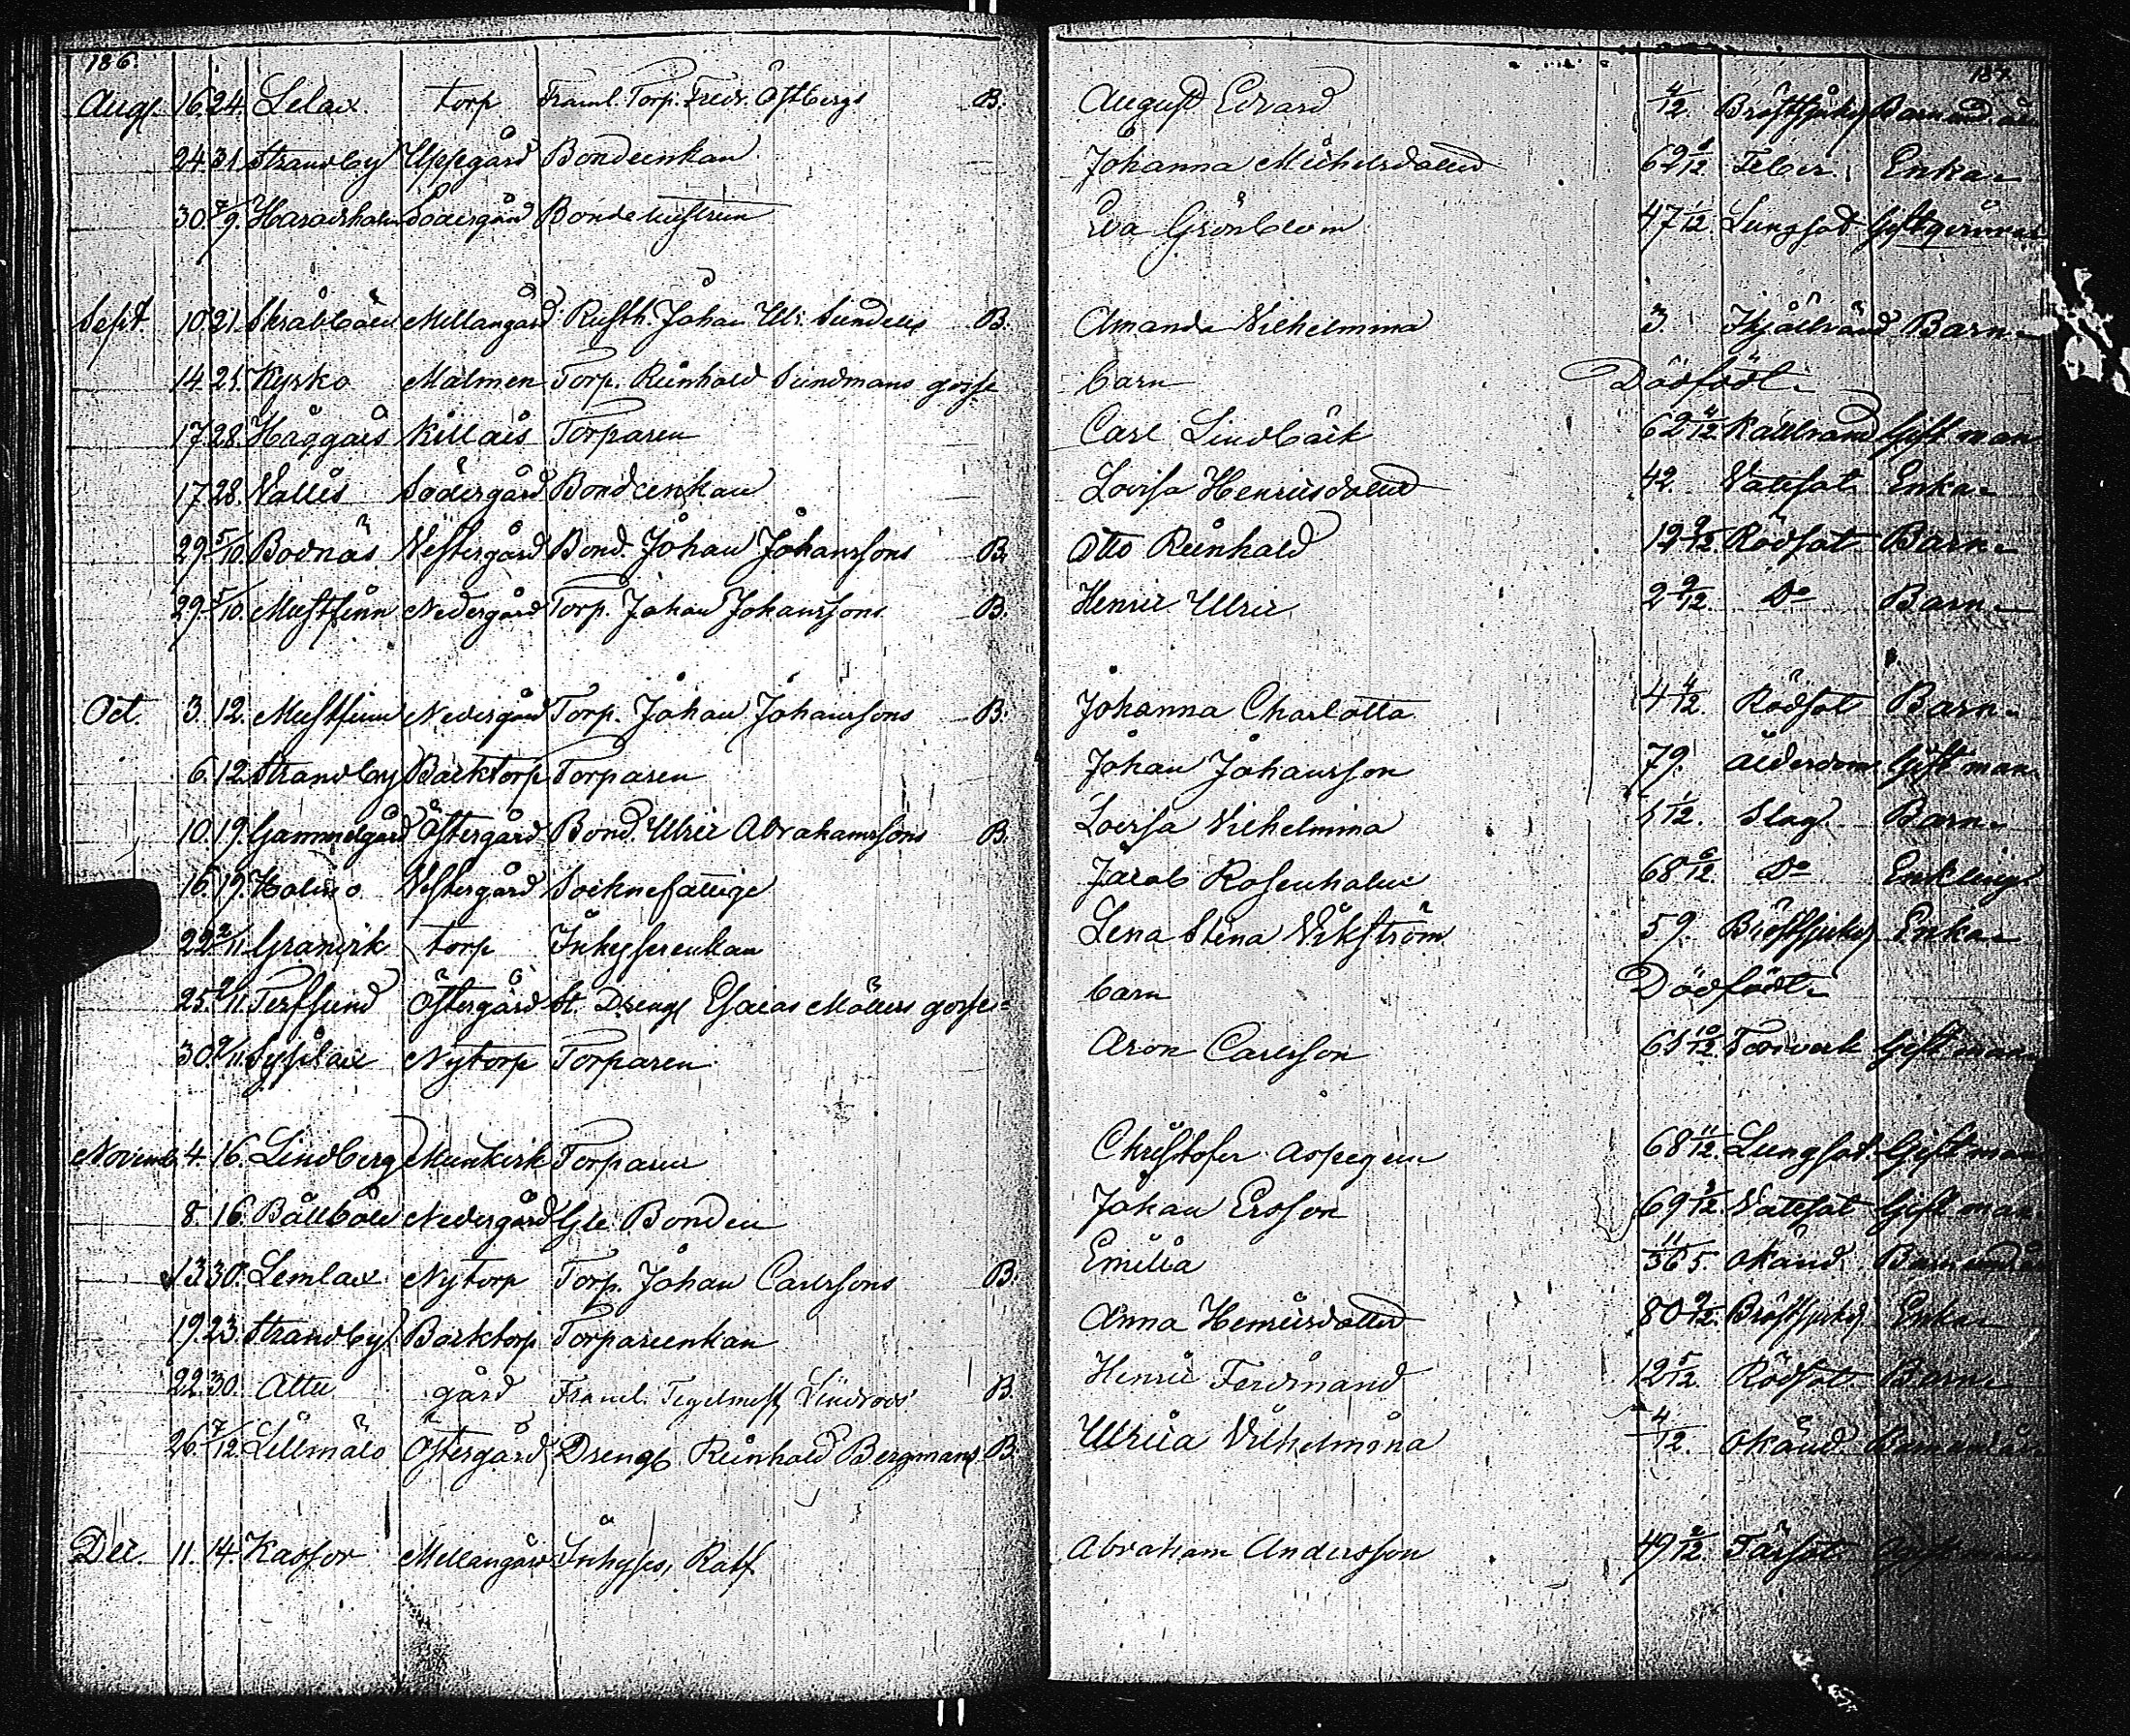 186. 187.
Aug. 16. 24. Lelax torp Framl. Torp. Fredr. Östbergs B. August Edvard 4/12. Bröstsjukd Barn und. år
24. 31. Strandby Uppgård Bondeenkan Johanna Michelsdotter 62 /12 Feber. Enka
30. 7/9. Haradsholm Södergård Bondehustrun Eva Grönblom 47 1/12. Lungsot Gift qvinna
Sept. 10. 21. Skräbböle Mellangård Rusth. Johan Ulr. Sundells B. Amanda Vilhelmina 3 Barn
14. 21. Kyrko Malmen Torp. Reinhold Sundmans gosse barn Dödfödt
17. 28. Häggais Killais Torparen Carl Lindbäck 62 4/12 Kallbrand Gift man
17. 28. Vallis Södergård Bondeenkan Lovisa Henricsdotter 42. Vattsot Enka
29. 5/10. Bodnäs Vestergård Bond. Johan Johanssons B. Otto Reinhold 12 9/12. Rödsot Barn
29. 5/10. Mustfinn Nedergård Torp. Johan Johanssons B. Henric Ulric 2 9/12. Do Barn
Oct. 3. 12. Mustfinn Nedergård Torp. Johan Johanssons B. Johanna Charlotta 4 4/12. Rödsot Barn
6. 12. Strandby Backtorp Torparen Johan Johansson 79. Ålderdom Gift man
10. 19. Gammelgård Östergård Bond. Ulric Abrahamssons B. Lovisa Vilhelmina 1/12. Slag Barn
16. 19. Holmo Vestergård Socknefattige Jacob Rosenholm 68 6/12. Do Enkling
22. 2/11. Granvik torp Inhyserenkan Lena Stina Vikström 59. Bröstsjukd Enka
25. 2/11. Terfsund Östergård St. Dreng Esaias Möllers gosse barn Dödfödt
30. 9/11. Sysilax Nytorp Torparen Aron Carlsson 65 10/12. Torrverk Gift man
Novemb. 4. 16. Lindberg Munkvik Torparen Christofer Aspegren 68 11/12. Lungsot Gift man
8. 16. Bällböle Nedergård Gle. Bonden Johan Ersson 69 2/12. Vattsot Gift man
13. 30. Lemlax Nytorp Torp. Johan Carlssons B. Emilia 11/365. Okänd. Barn und. år
19. 23. Strandby Backtorp Torpareenkan Anna Henricsdotter 80 9/12. Bröstsjukd Enka
22. 30. Attu gård Framl. Tegelmest. Lindroos B. Henric Ferdinand 12 5/12. Rödsot Barn
26. 7/12. Lillmälö Östergård Drengs Reinhold Bergmans B. Ulrica Vilhelmina 4/12. Okänd Barn und. år
Dec. 11. 14. Kassor Mellangård Inhyses, Rotf. Abraham Andersson 49 2/12. Tärsot Gift man